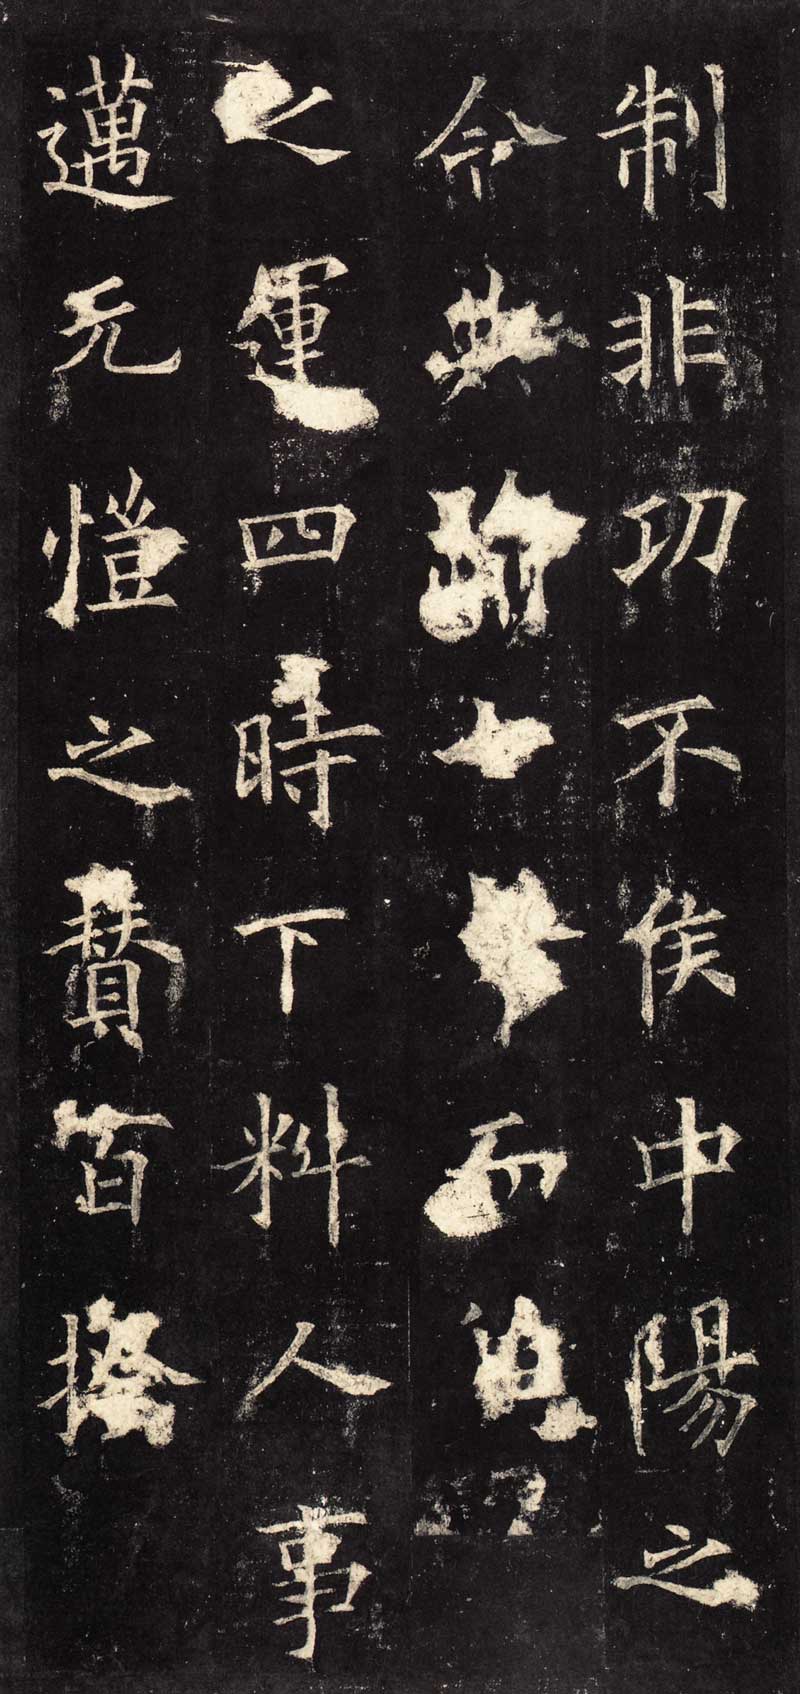 制非功不俟中陽之
令典
之運四時下料人事
邁元愷之贊百揆